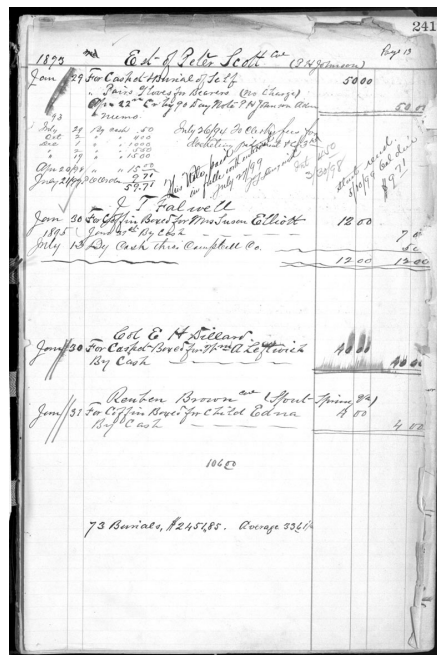 241
1893 Est of Peter Scott Col (P H Johnson) Page 13
Jan 29 For Casket & Burial of Self 50 00
" Pairs Gloves for Bearers (no Charge)
Apr 22nd Cr by 90 Day Note P H Johnson Adm 50 00
93 " memo.
July 29 By cash .50
Oct 2 " " 400
Dec 1 " " 1000
" 2 " " 500
" 19 " " 1500
Apr 20/98 " " 15
July 21/99 9.71
59.71
July 26/94 To Clerks fees for
docketing
This Note paid
in full
July 21/99
Col 2.50
3/30/98
3/30/98 Bal due
$9.71
J T Falwell
Jan 30 For Coffin Boxed for Mrs Susan Elliott 12 00
1895 Jan By Cash 7 00
July 13 By Cash thro Campbell Co. 5 00
12 00 12 00
Col E H Dillard
Jany 30 For Casket Boxed for Wm A Leftwich 40 00
By Cash 40 00
Reuben Brown Col (Spout Spring, Va)
Jan 31 For Coffin Boxed for Child Edna 4 00
By Cash 4 00
106 00
73 Burials, $2451,85. Average 33 61/2